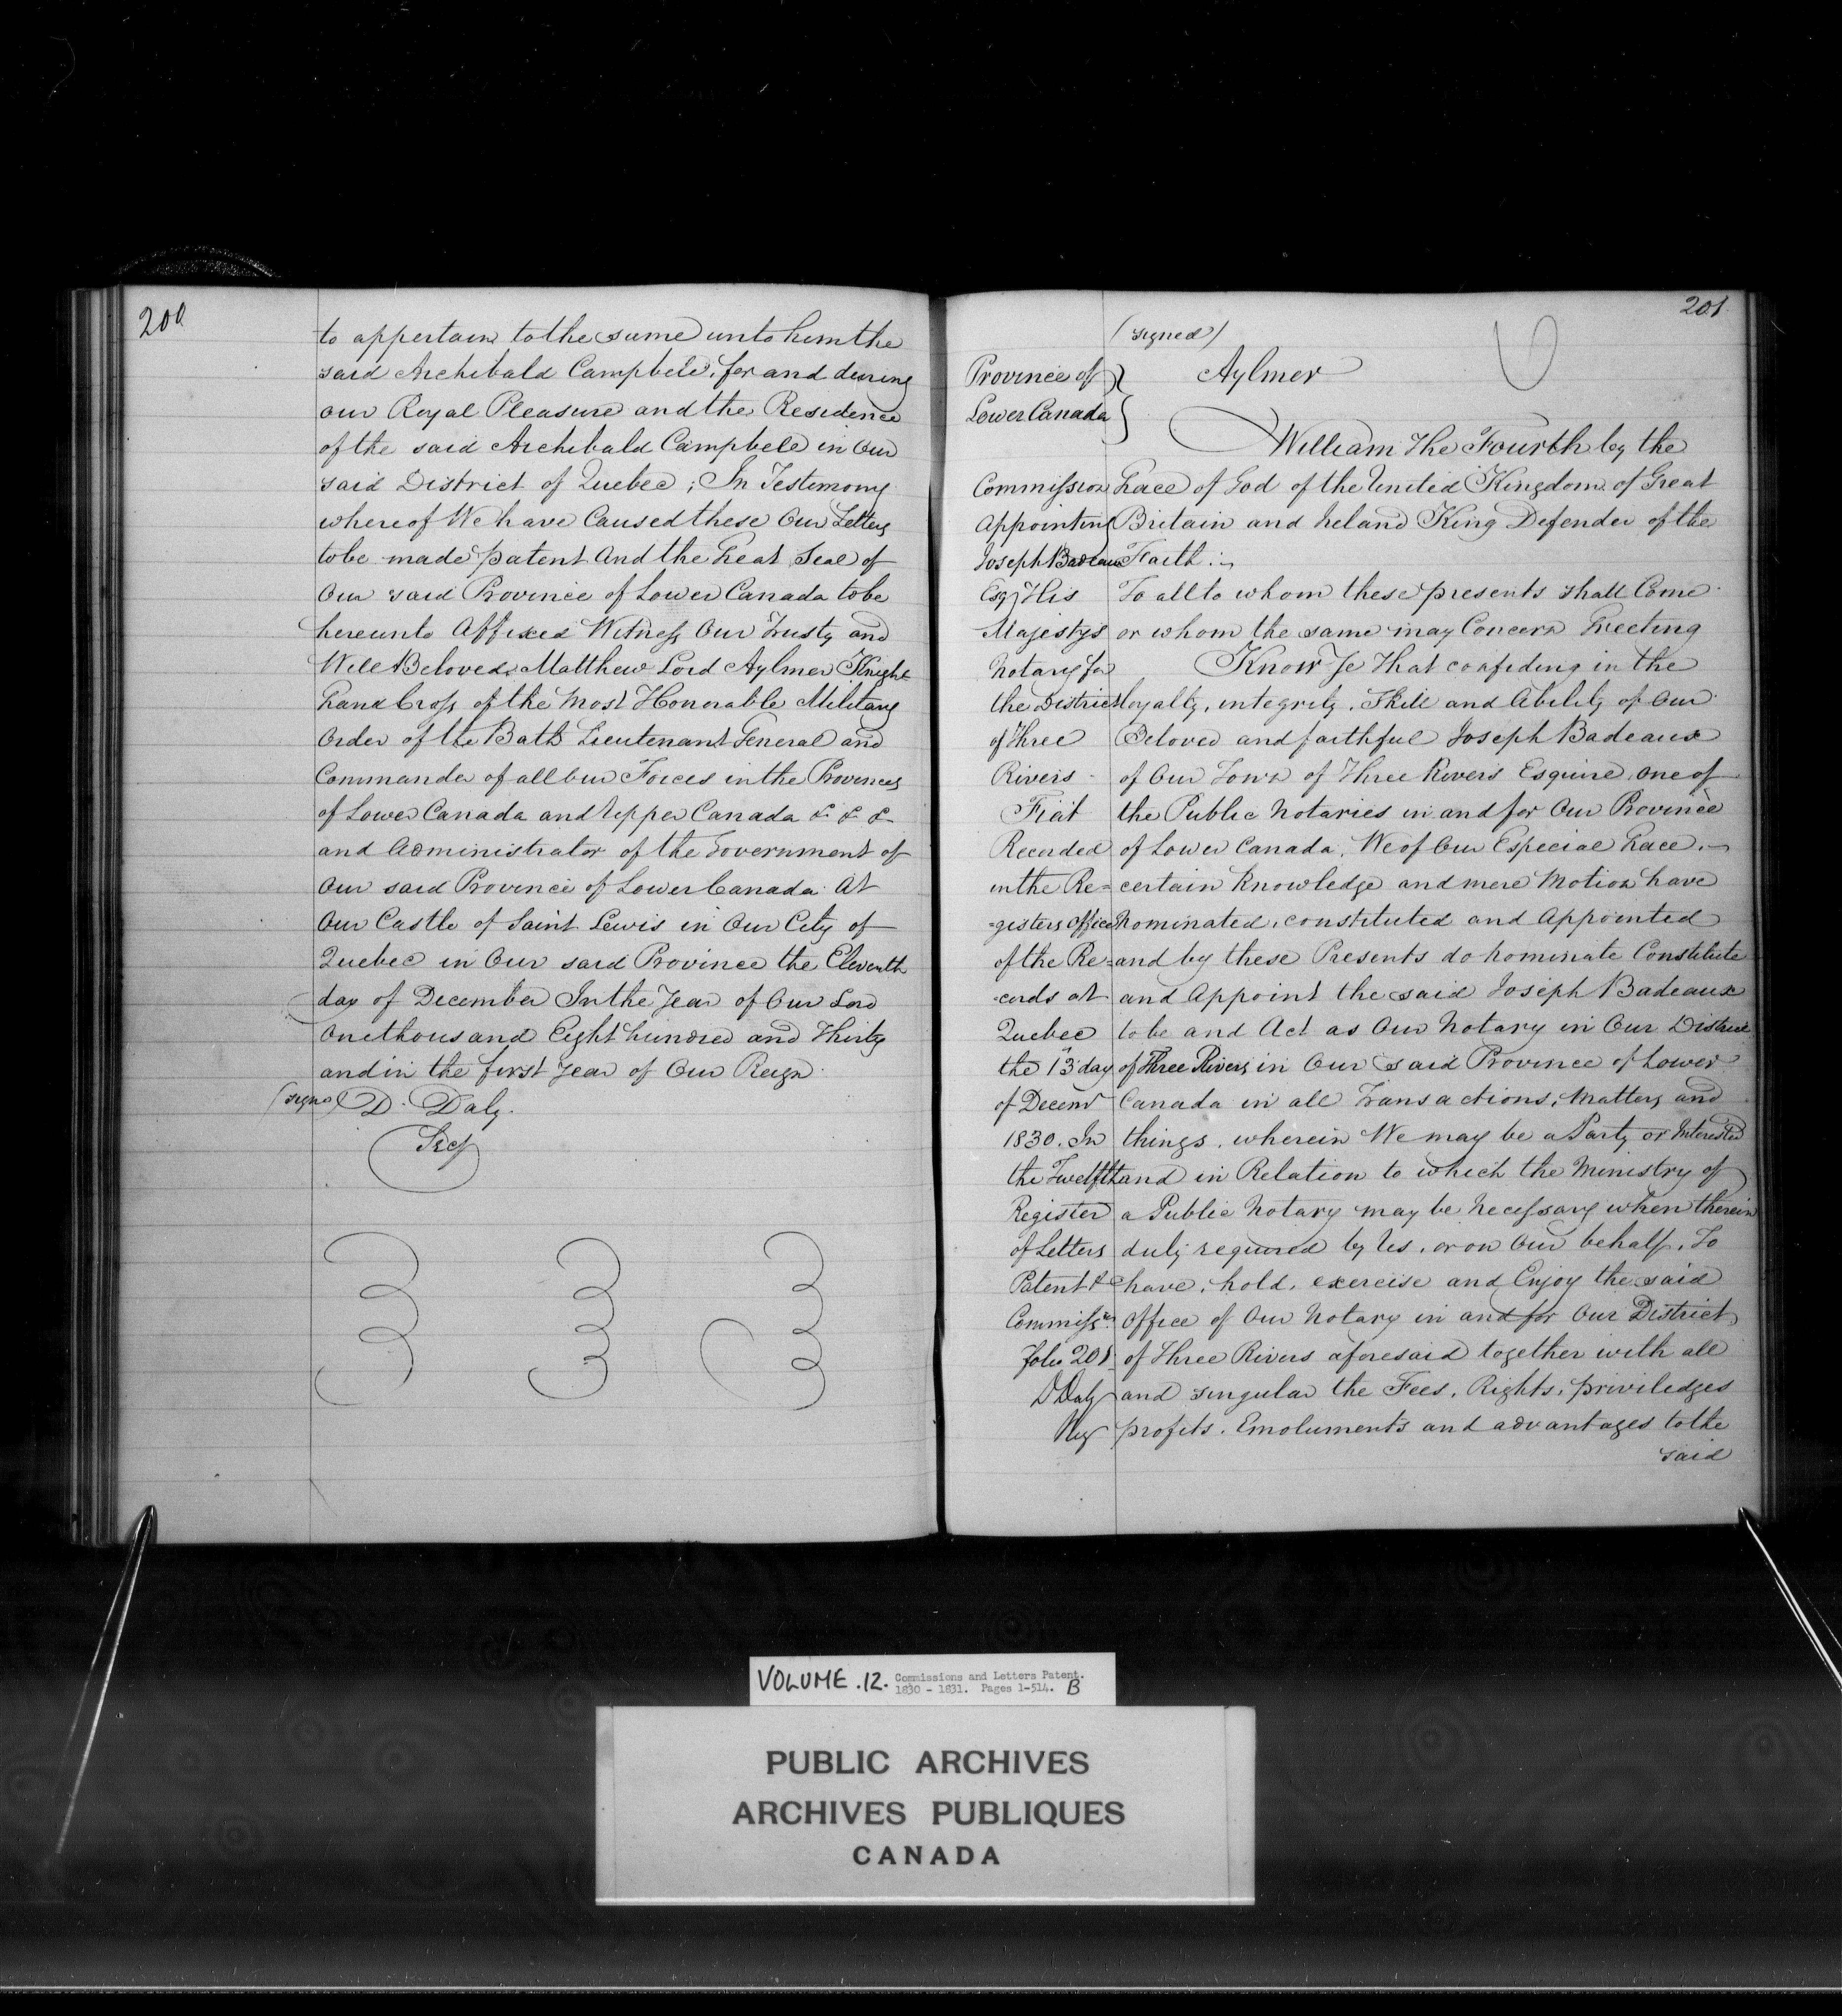 200
to appertain to the same unto him the
said Archibald Campbell, for and during
our Royal Pleasure and the Residence
of the said Archibald Campbell in Our
said District of Quebec; In Testimony
whereof We have Caused these Our Letters
to be made patent And the Great Seal of
Our said Province of Lower Canada to be
hereunto Affixed Witness Our Trusty and
Well Beloved Matthew Lord Aylmer Knight
Grand Cross of the Most Honorable Military
Order of the Bath Lieutenant General and
Commander of all our Forces in the Provinces
of Lower Canada and Upper Canada &. &. &.
and Administrator of the Government of
Our said Province of Lower Canada. At
Our Castle of Saint Lewis in Our City of
Quebec in Our said Province the Eleventh
day of December In the Year of Our Lord
One thousand Eight hundred and Thirty
and in the first year of Our Reign.
(signed) D. Daly.
Secy
201
(signed)
Aylmer
Province of
Lower Canada
William The Fourth by the
Grace of God of the United Kingdom of Great
Britain and Ireland King Defender of the
Faith :
To all to whom these presents shall Come
or whom the same may Concern Greeting
Know Ye That confiding in the
loyalty, integrity, Skill and Ability of Our
Beloved and faithful Joseph Badeaux
of Our Town of Three Rivers Esquire, one of
the Public Notaries in and for Our Province
of Lower Canada, We of Our Especial Grace,
certain Knowledge and mere Motion have
Nominated, constituted and Appointed
and by these Presents do nominate Constitute
and Appoint the said Joseph Badeaux
to be and Act as Our Notary in Our District
of Three Rivers in Our said Province of Lower
Canada in all Transactions, Matters and
things, wherein We may be a Party or Interested
and in Relation to which the Ministry of
a Public Notary may be Necessary when therein
duly required by Us, or on Our behalf, To
have, hold, exercise and Enjoy the said
Office of Our Notary in and for Our District
of Three Rivers aforesaid together with all
and singular the Fees, Rights, priviledges
profits, Emoluments and advantages to the
said
Commission
Appointing
Joseph Badeaux
Esqr His
Majesty's
Notary for
the District
of Three
Rivers -
Fiat
Recorded
in the Re=
=gisters Office
of the Re=
=cords at
Quebec
the 13 day
of Decemr
1830. In
the Twelfth
Register
of Letters
Patent &
Commissns
folio 201
D Daly
Reg
VOLUME .12. Commissions and Letters Patent.
1830 - 1831. Pages 1-514. B
PUBLIC ARCHIVES
ARCHIVES PUBLIQUES
CANADA